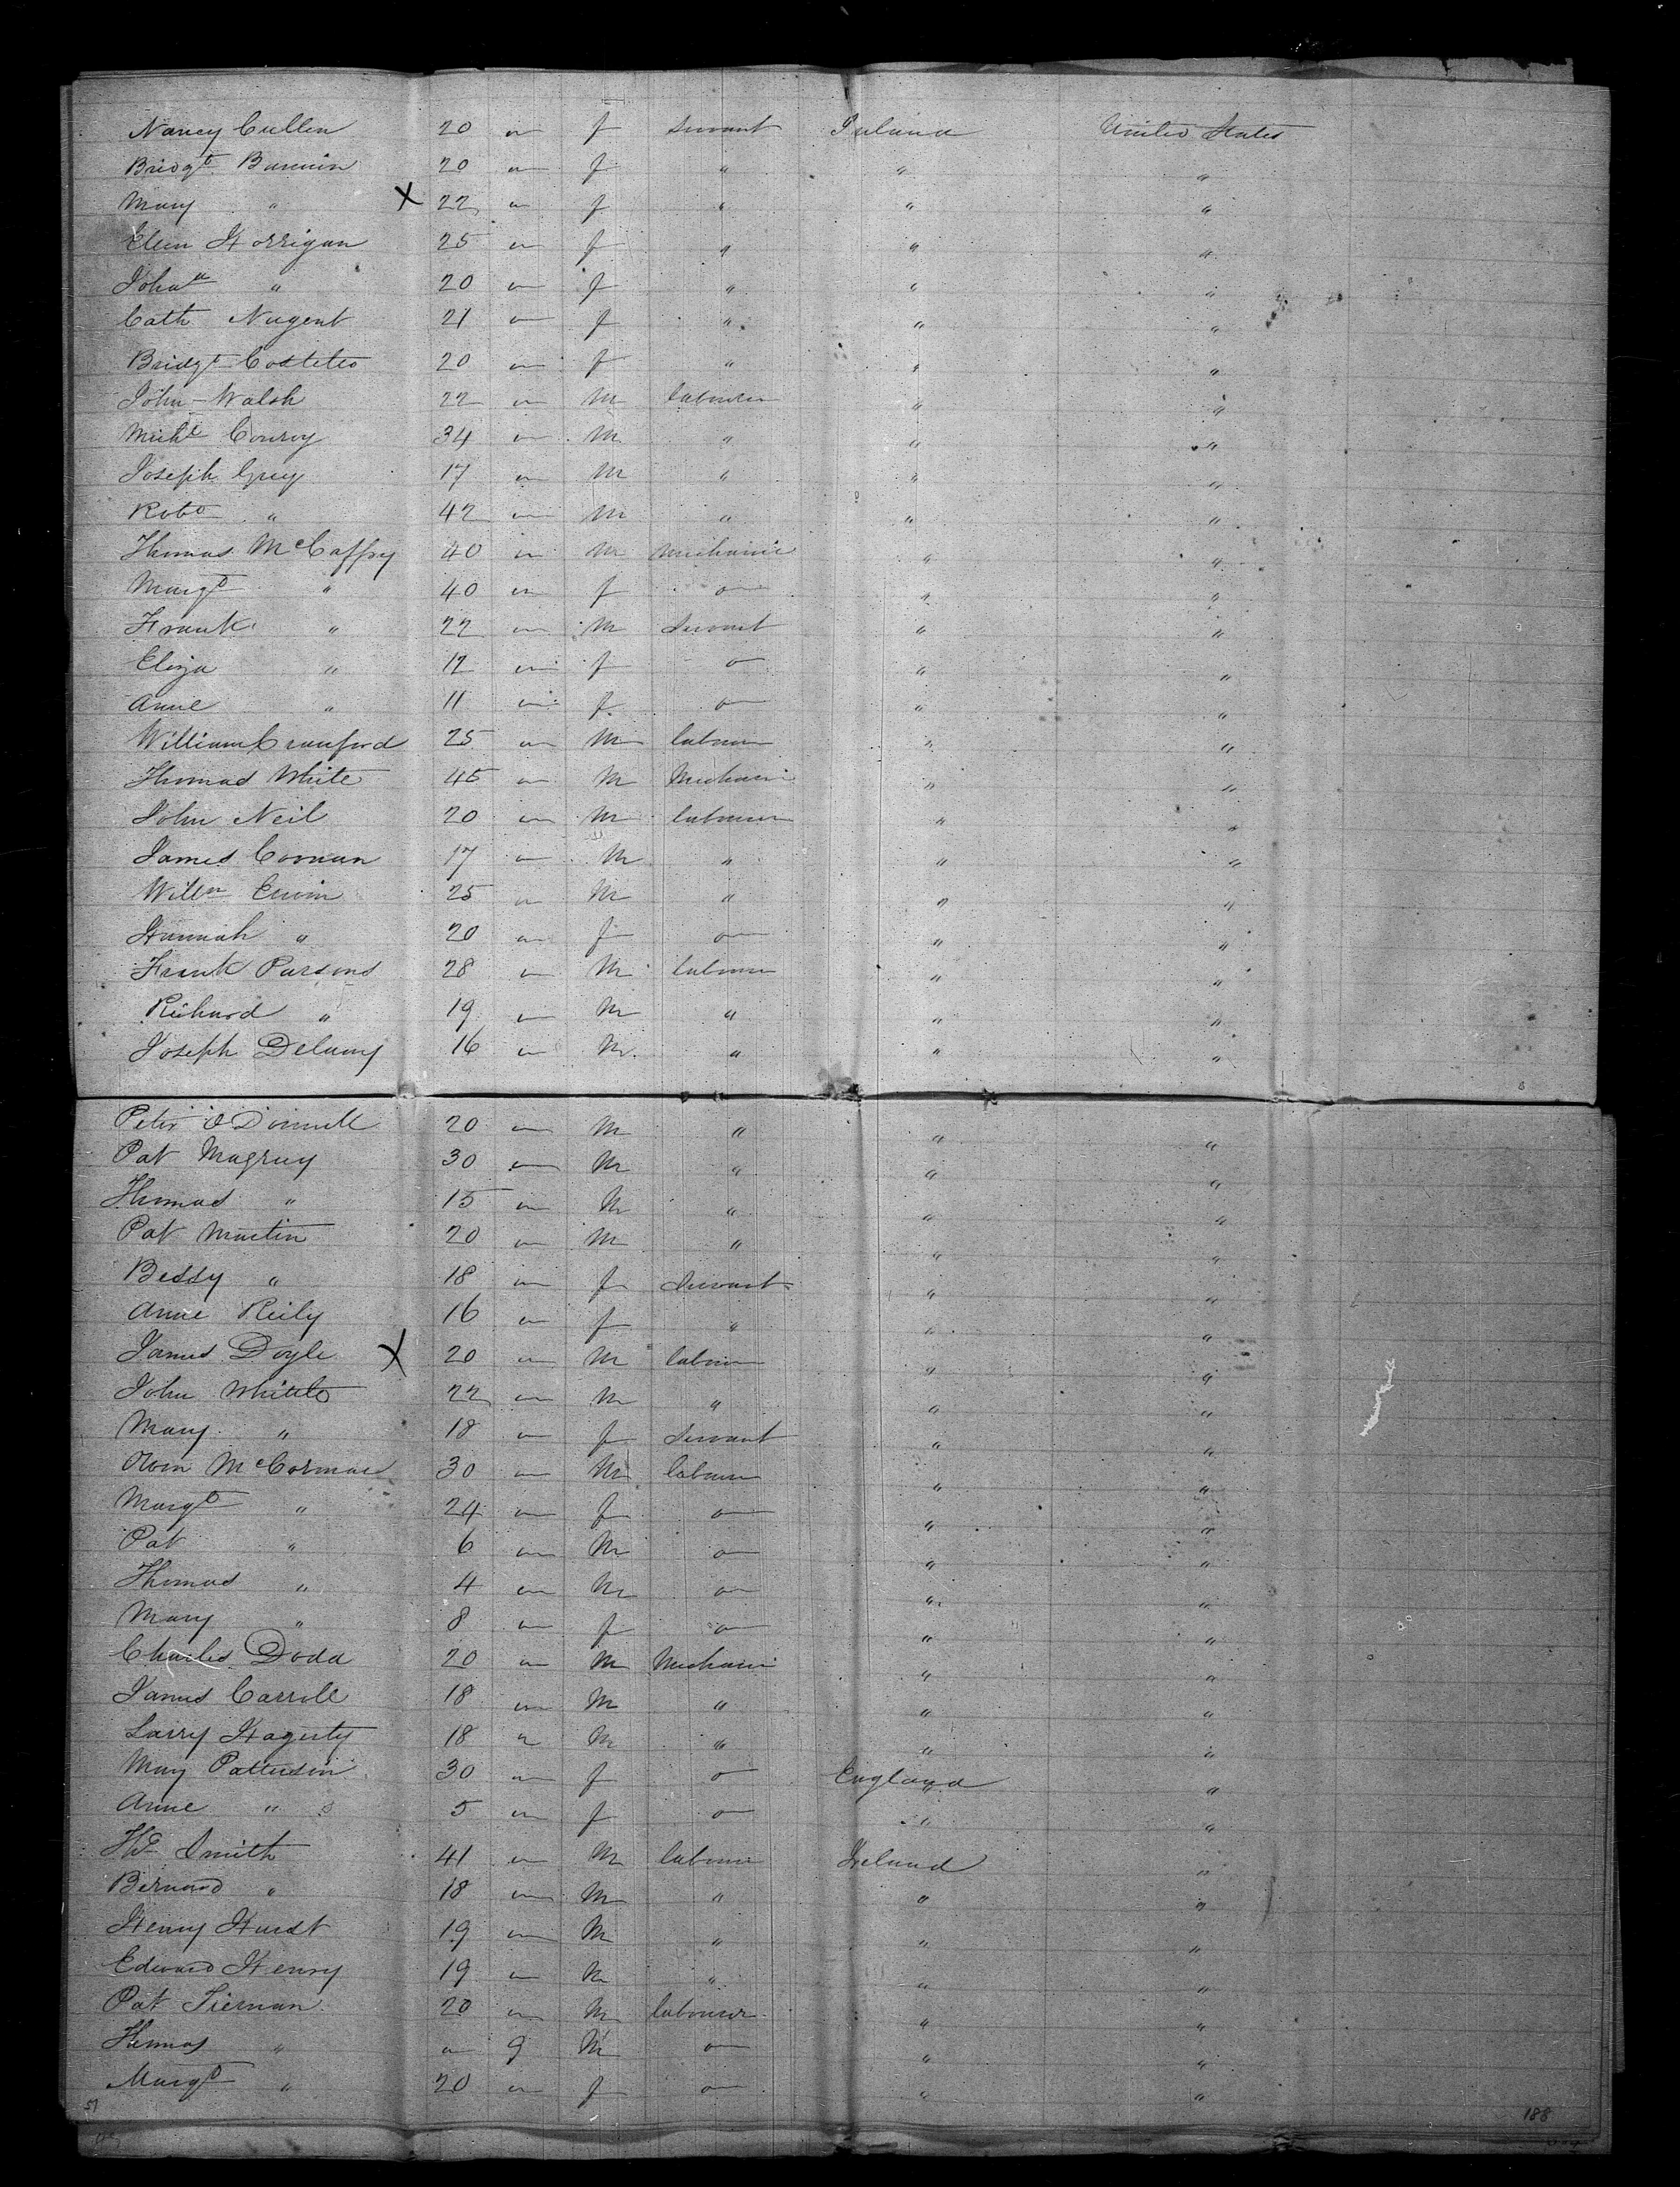 Nancy Cullen 20 " f Servant Ireland United States
Bridgt Bannin 20 " f " " "
Mary " X 22 " f " " "
Ellen Horrigan 25 " f " " "
Johaa " 20 " f " " "
Cath Nugent 21 " f " " "
Bridgt Costeleo 20 " f " " "
John Walsh 22 " M labourer " "
Michl Conroy 34 " M " " "
Joseph Grey 17 " M " " "
Robt " 42 " M " " "
Thomas McCaffry 40 " M Mechanic " "
Margt " 40 " f " " "
Frank " 22 " M Servant " "
Eliza " 12 " f " " "
Anne " 11 " f " " "
William Crauford 25 " M labourer " "
Thomas White 45 " M Mechanic " "
John Neil 20 " M labourer " "
James Coonan 17 " M " " "
Willm Erwin 25 " M " " "
Hannah " 20 " f " " "
Frank Parsons 28 " M labourer " "
Richard " 19 " M " " "
Joseph Delany 16 " M " " "
Peter O'Donnell 20 " M " " "
Pat Magruy 30 " M " " "
Thomas " 15 " M " " "
Pat Martin 20 " M " " "
Bessy " 18 " f Servant " "
Anne Reily 16 " f " " "
James Doyle X 20 " M labourer " "
John Whitto 22 " M " " "
Mary " 18 " f Servant " "
Owen McCormac 30 " M labourer " "
Margt " 24 " f " " "
Pat " 6 " M " " "
Thomas " 4 " M " " "
Mary " 8 " f " " "
Charles Dodd 20 " M Mechanic " "
James Carroll 18 " M " " "
Larry Hagerty 18 " M " " "
Mary Patterson 30 " f " England "
Anne " 5 " f " " "
Ths Smith 41 " M labourer Ireland "
Bernard " 18 " M " " "
Henry Hurst 19 " M " " "
Edward Henry 19 " M " " "
Pat Tiernan 20 " M labourer " "
Thomas " " 9 M " " "
Margt " 20 " f " " "
51 188